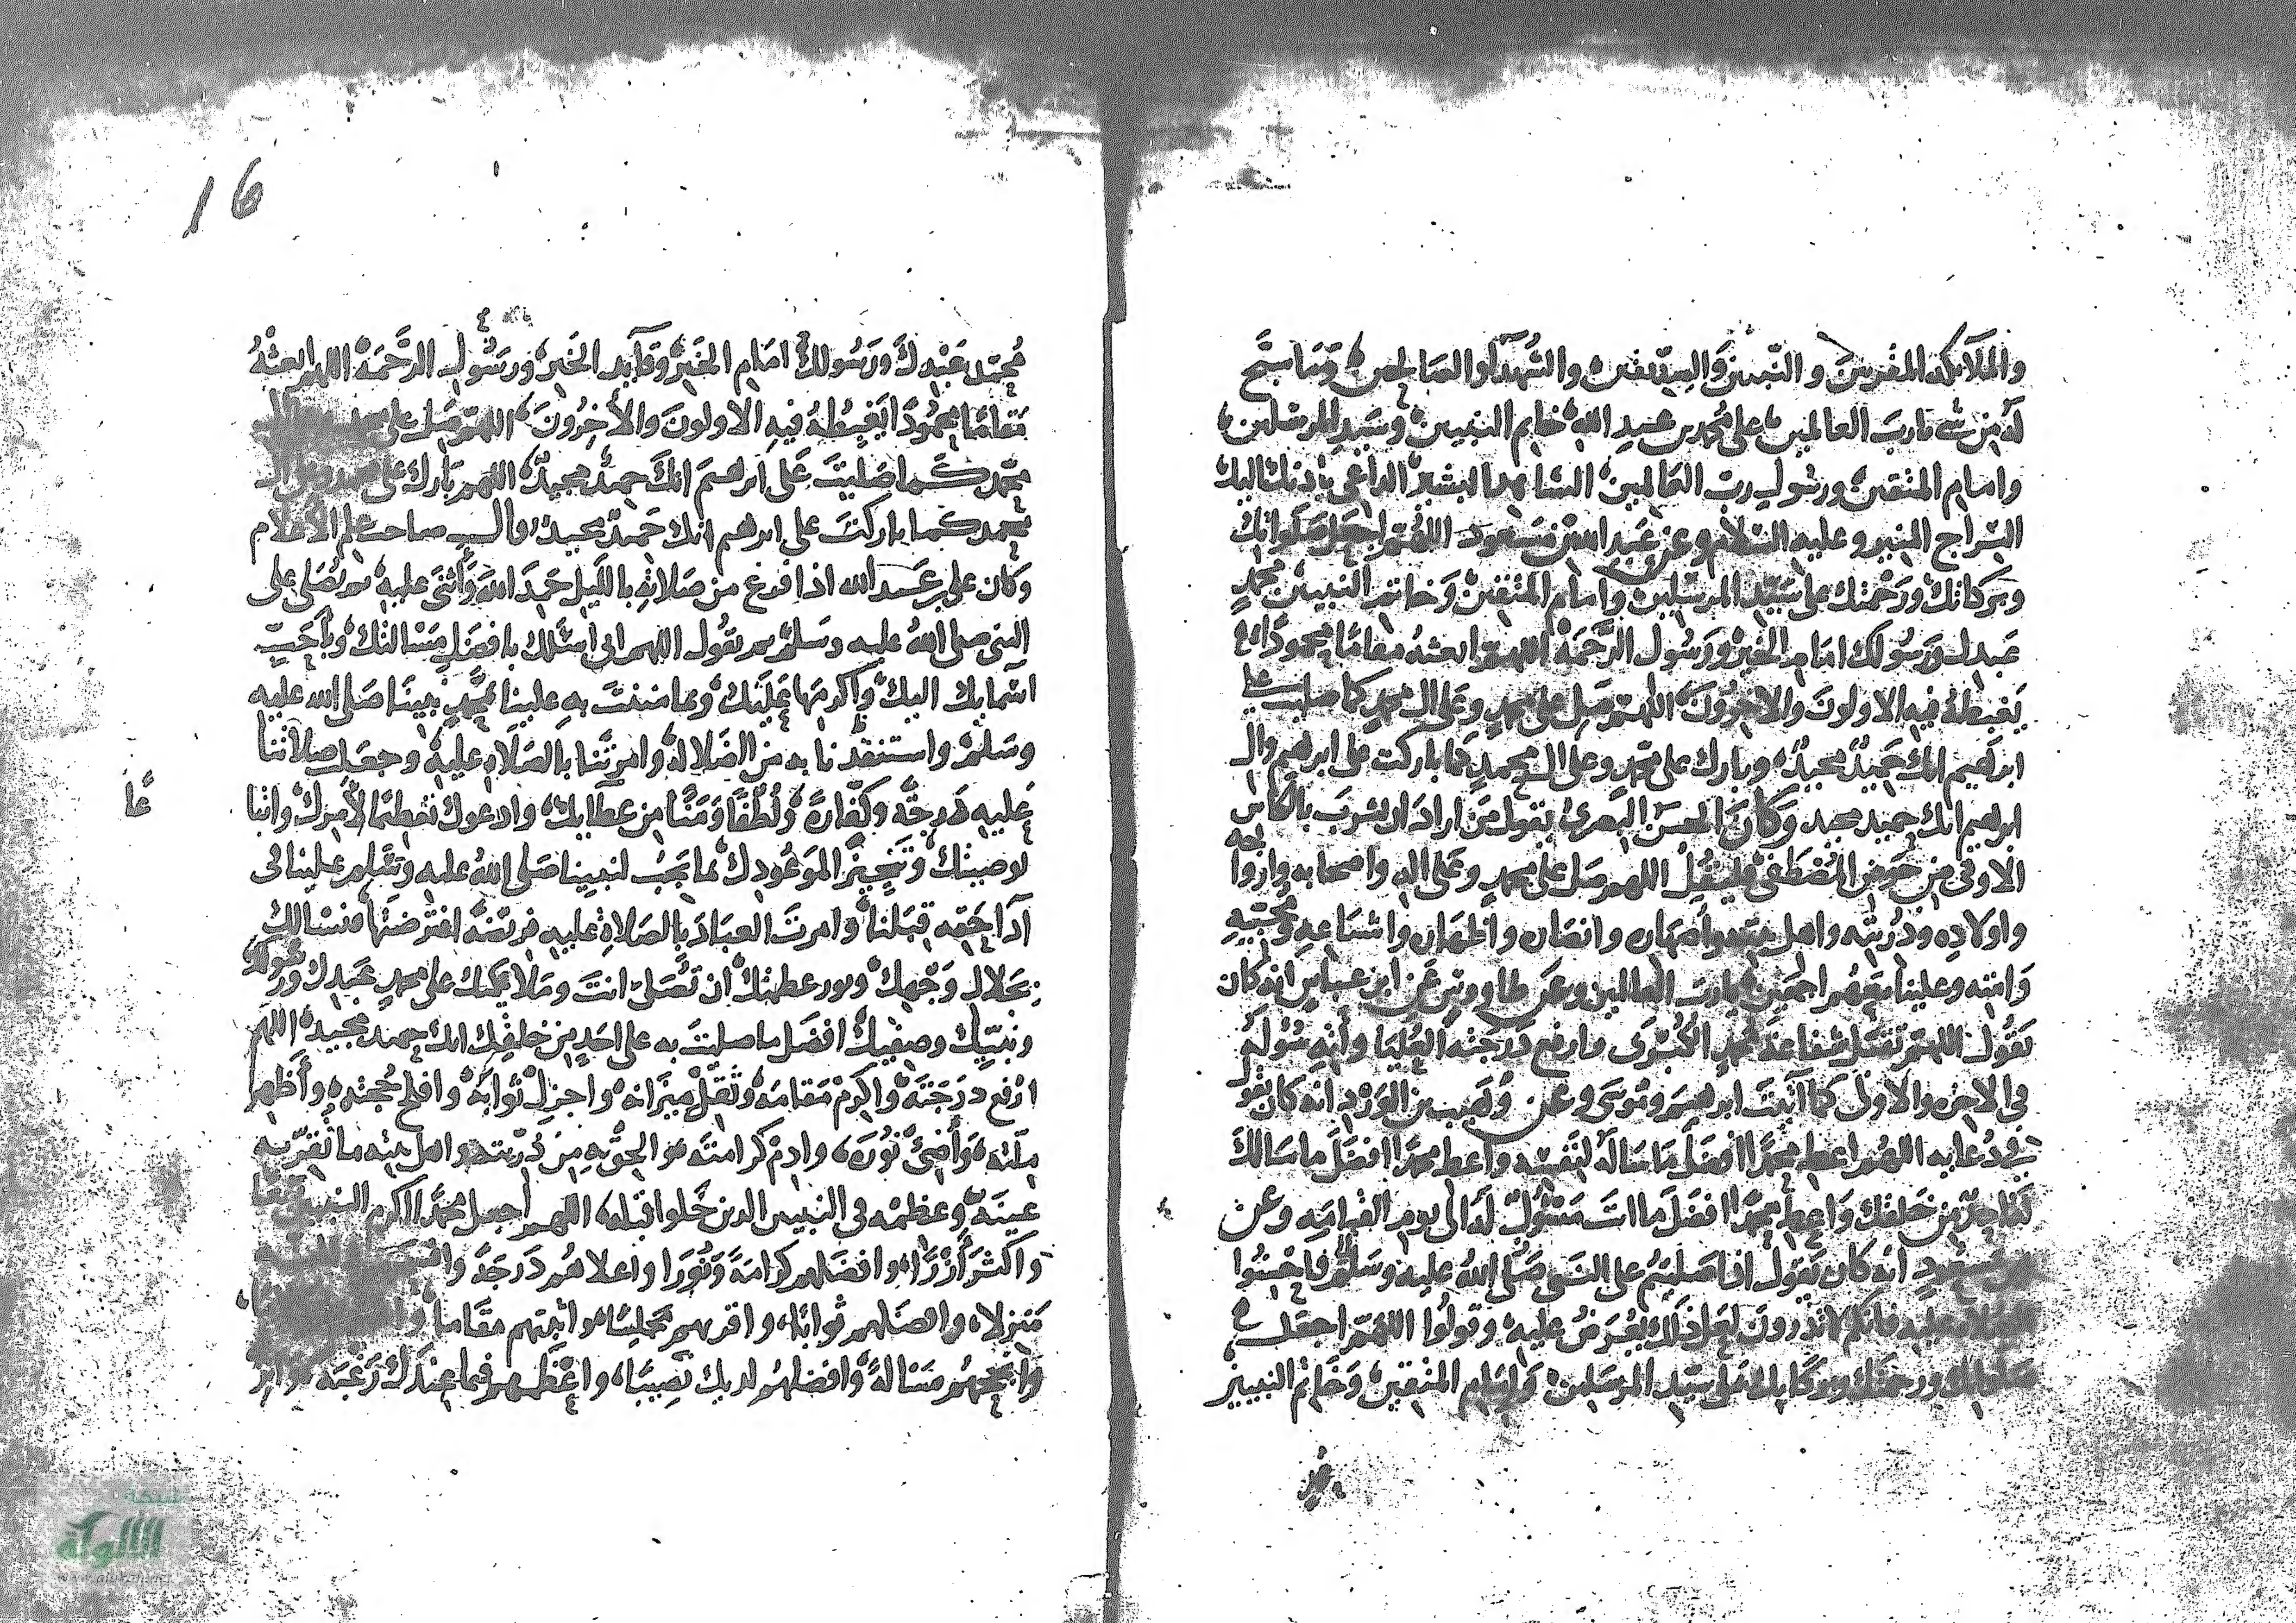 والملائكة المقربين والنبيين والصديقين والشهداء والصالحين وما سبح
له من شي يا رب العالمين على محمد بن عبد الله خاتم النبيين وسيد المرسلين
وامام المتقين ورسول رب العالمين الشاهد البشير الداعي باذنك اليك
السراج المنير وعليه السلام وعن عبد الله بن مسعود اللهم اجعل صلواتك
وبركاتك ورحمتك على سيد المرسلين وامام المتقين وخاتم النبيين محمد
عبدك ورسولك امام الخير ورسول الرحمة اللهم ابعثه مقاما محمودا
يغبطه فيه الاولون والاخرون اللهم صل على محمد وعلى ال محمد كما صليت على
ابرهيم انك حميد مجيد وبارك على محمد وعلى ال محمد كما باركت على ابرهيم وال
ابرهيم انك حميد مجيد وكان الحسن البصري يقول من اراد ان يشرب بالكاس
الاوفى من حوض المصطفى فليقل اللهم صل على محمد وعلى اله واصحابه وازواجه
واولاده وذريته واهل بيته واصهاره وانصاره واشياعه ومحبيه
وامته وعلينا معهم اجمعين يا رب العالمين وعن طاووس عن ابن عباس انه كان
يقول اللهم تقبل شفاعة محمد الكبرى وارفع درجته العليا وآته سوله
في الاخرة والاولى كما آتيت ابرهيم وموسى وعن وهيب بن الورد انه كان يقول
في دعايه اللهم اعط محمدا افضل ما سالك لنفسه واعط محمدا افضل ما سالك
له احد من خلقك واعط محمدا افضل ما انت مسئول له الى يوم القيامه وعن
بن مسعود انه كان يقول اذا صليتم على النبي صلى الله عليه وسلم فاحسنوا
الصلاة عليه فانكم لا تدرون لعل ذلك يعرض عليه وقولوا اللهم اجعل
صلواتك ورحمتك وبركاتك على سيد المرسلين وامام المتقين وخاتم النبيين
محمد
16
محمد عبدك ورسولك امام الخير وقآيد الخير ورسول الرحمة اللهم ابعثه
مقاما محمودا يغبطه فيه الاولون والاخرون اللهم صل على محمد
محمد كما صليت على ابرهيم انك حميد مجيد اللهم بارك على محمد وعلى ال
محمد كما باركت على ابرهيم انك حميد مجيد وال
وكان علي بن عبد الله اذا فرغ من صلاته بالليل حمد الله وأثنى عليه ثم يصلي على
النبي صلى الله عليه وسلم ثم يقول اللهم اني اسئلك بافضل مسالتك وبأحب
اسمايك اليك واكرمها عليك وبما مننت به علينا بمحمد نبينا صلى الله عليه
وسلم واستنقذتنا به من الضلالة وامرتنا بالصلاة عليه وجعلت صلاتنا
عليه درجة وكفارة ولطفا ومنا من عطايك وادعوك تعظيما لأمرك واتباعا
لوصيتك وتنجيز الموعودك بما يجب لنبينا صلى الله عليه وسلم علينا في
آداء حقه قبلنا وامرت العباد بالصلاة عليه فريضة افترضتها فنسالك
بجلال وجهك ونور عظمتك ان تصلي انت وملايكتك على محمد عبدك ورسولك
ونبيك وصفيك افضل ما صليت به على احد من خلقك انك حميد مجيد اللهم
ارفع درجته واكرم مقامه وثقل ميزانه واجزل ثوابه وافلج حجته وأظهر
ملته وأضئ نوره وادم كرامته والحق به من ذريته واهل بيته ما تقر به
عينه وعظمه في النبيين الذين خلوا قبله اللهم اجعل محمدا اكرم النبيين تبعا
واكثر أزرا وافضلهم كرامة ونورا واعلاهم درجة
منزلا وافضلهم ثوابا واقربهم مجلسا واثبتهم مقاما
وانجحهم مسالة وافضلهم لديك نصيبا واعظمهم فيما عندك رغبة
شبكة
الألوكة
www.alukah.net